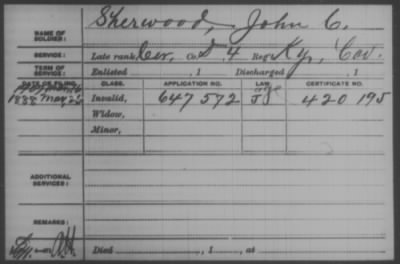 NAME OF SOLDIER: Sherwood, John C.
SERVICE: Late rank, Co. 4 Reg't Ky. Cav.
TERM OF SERVICE: Enlisted , 1 Discharged , 1
DATE OF FILING. CLASS. APPLICATION NO. LAW. CERTIFICATE NO.
age
1888 May 25 Invalid, 647 572 420 195
Widow,
Minor,
ADDITIONAL SERVICES:
REMARKS:
Died , 1 , at